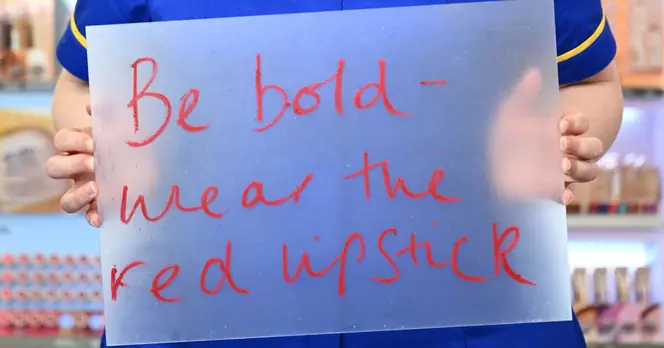 Be bold -
wear the
red lipstick